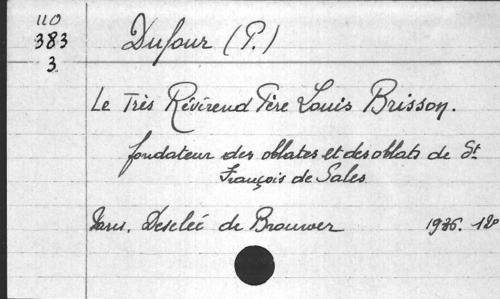 110
383
3.
Dufour (P.)
Le Très Révérend Père Louis Brisson.
fondateur des oblates et des oblats de St
François de Sales.
Paris. Desclée de Brouwer 1936. 12°